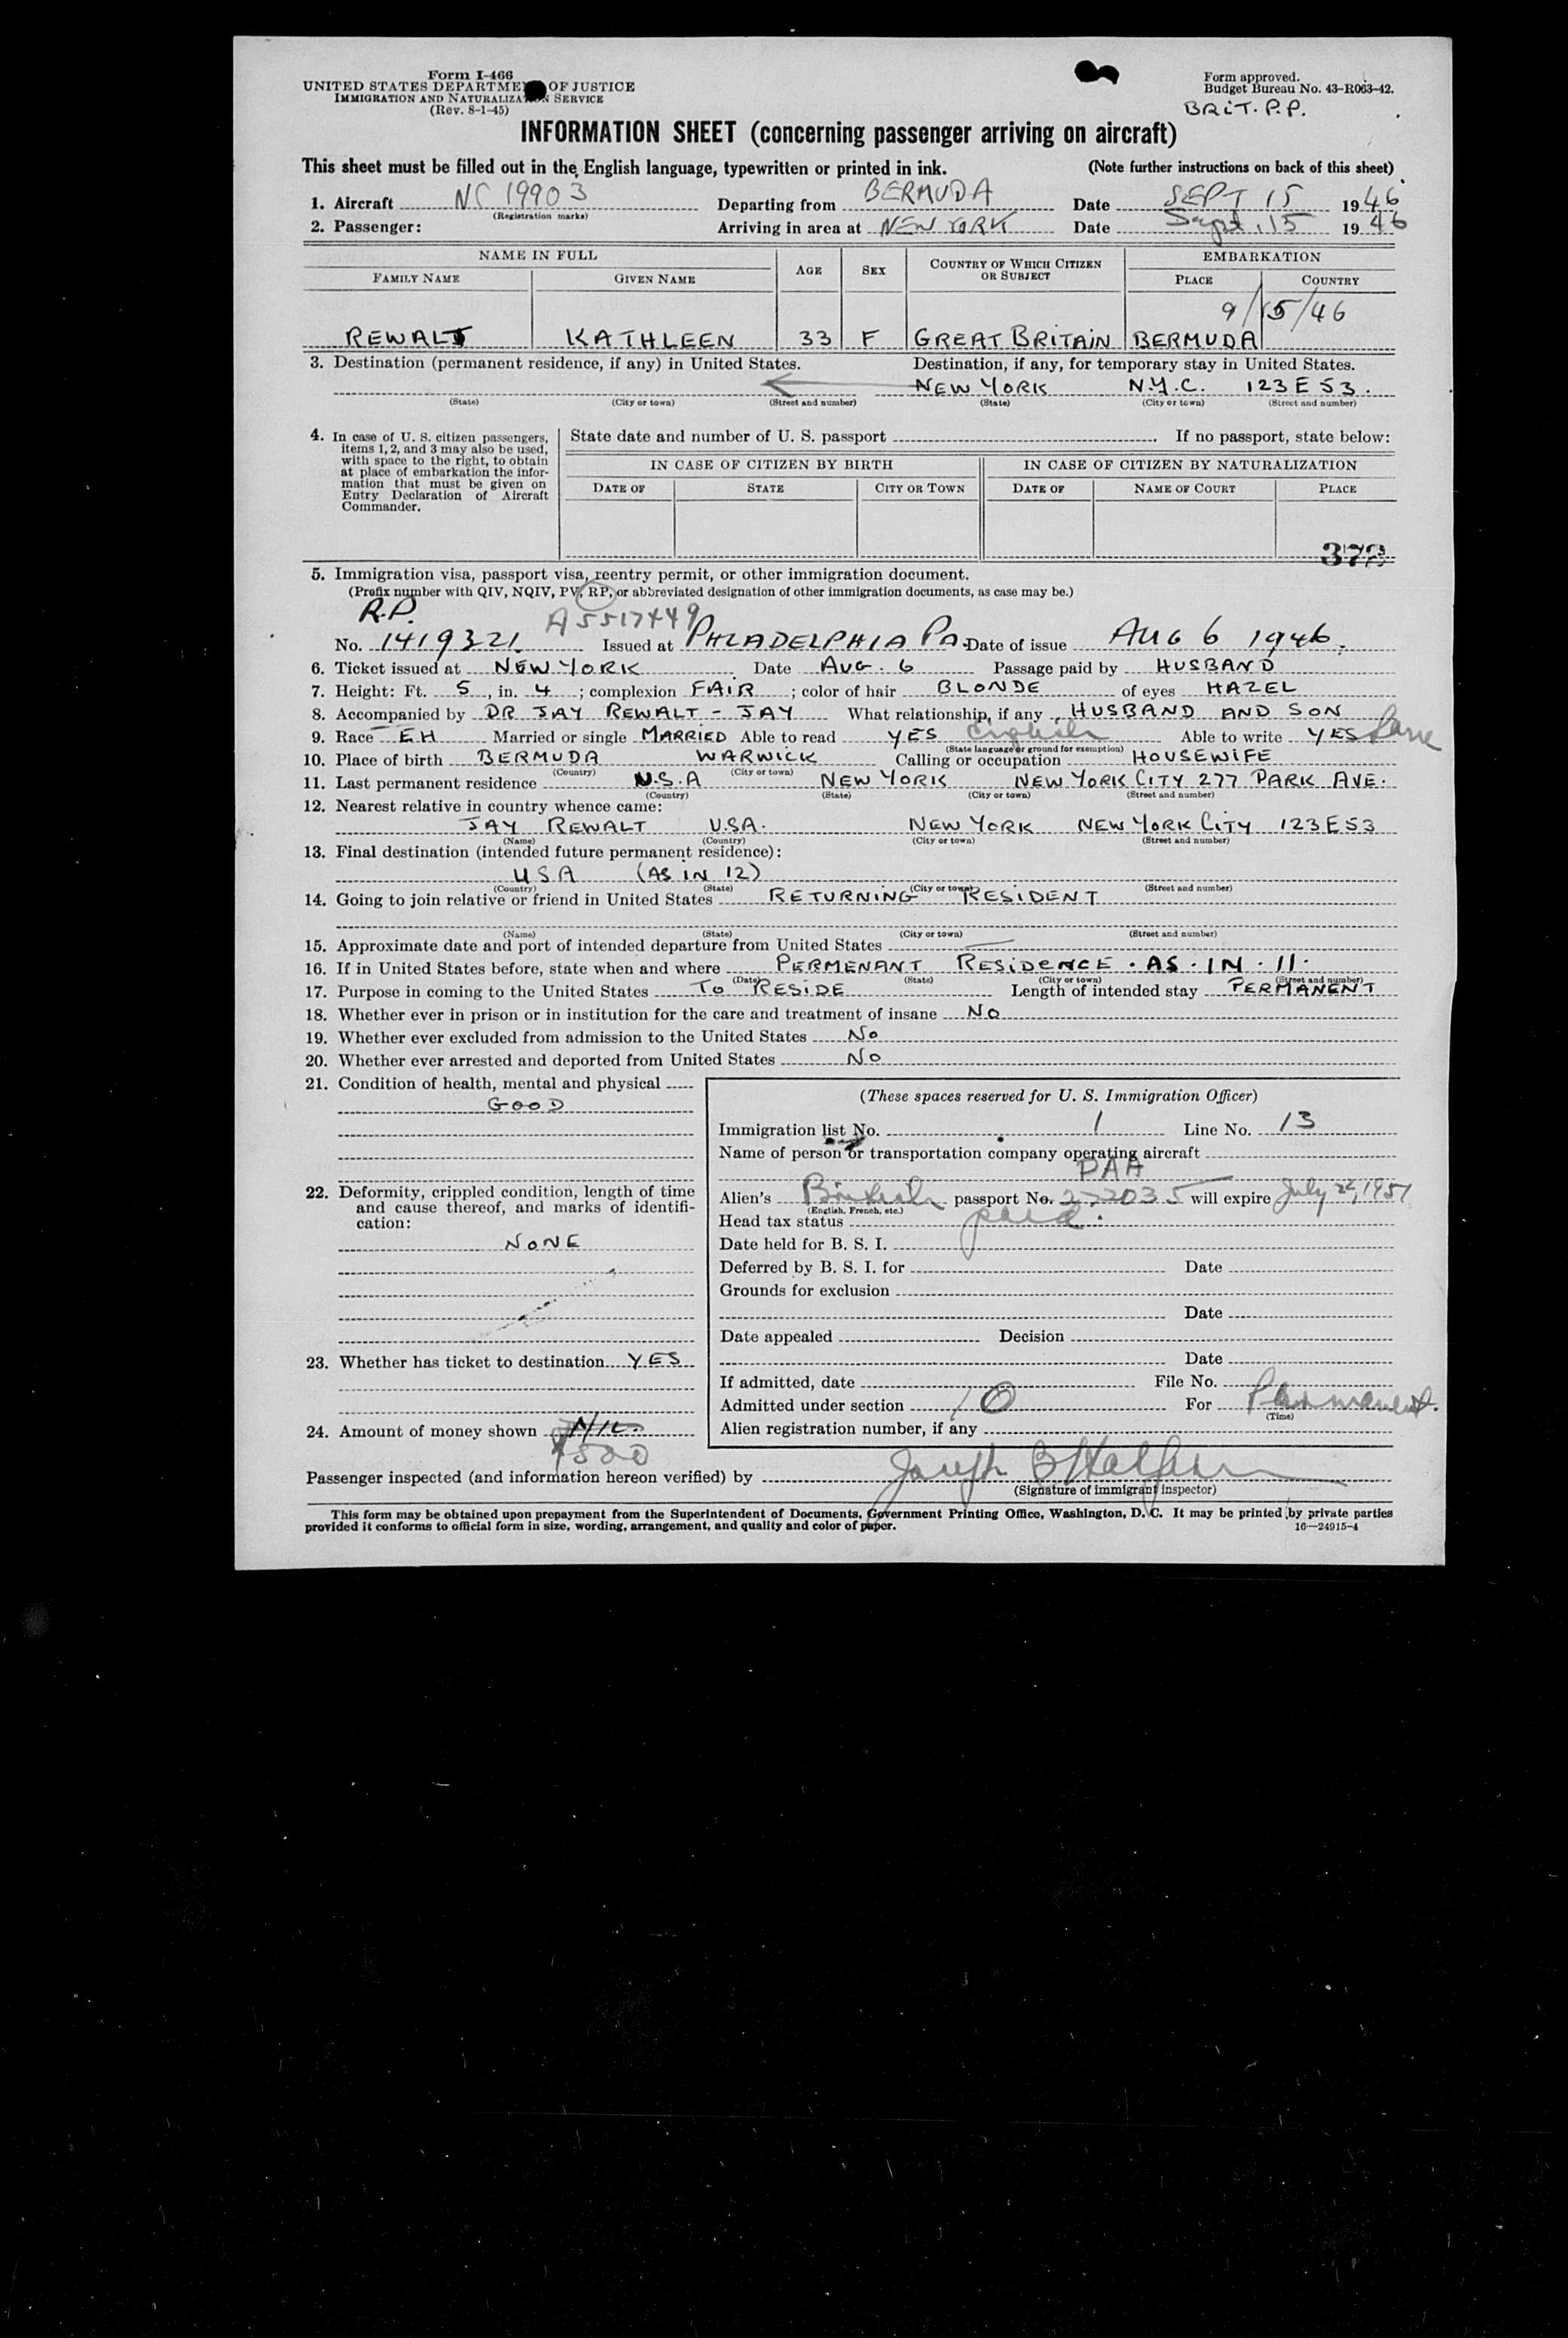 Form I-466
UNITED STATES DEPARTMENT OF JUSTICE
IMMIGRATION AND NATURALIZATION SERVICE
(Rev. 8-1-45)
Form approved.
Budget Bureau No. 43-R063-42.
BRIT. P.P.
INFORMATION SHEET (concerning passenger arriving on aircraft)
This sheet must be filled out in the English language, typewritten or printed in ink. (Note further instructions on back of this sheet)
1. Aircraft NC 19903 Departing from BERMUDA Date SEPT 15 1946
(Registration marks)
2. Passenger: Arriving in area at NEW YORK Date Sept. 15 1946
NAME IN FULL AGE SEX COUNTRY OF WHICH CITIZEN OR SUBJECT EMBARKATION
FAMILY NAME GIVEN NAME PLACE COUNTRY
9/15/46
REWALT KATHLEEN 33 F GREAT BRITAIN BERMUDA
3. Destination (permanent residence, if any) in United States. Destination, if any, for temporary stay in United States.
NEW YORK N.Y.C. 123 E 53.
(State) (City or town) (Street and number) (State) (City or town) (Street and number)
4. In case of U. S. citizen passengers, items 1, 2, and 3 may also be used, with space to the right, to obtain at place of embarkation the information that must be given on Entry Declaration of Aircraft Commander.
State date and number of U. S. passport If no passport, state below:
IN CASE OF CITIZEN BY BIRTH IN CASE OF CITIZEN BY NATURALIZATION
DATE OF STATE CITY OR TOWN DATE OF NAME OF COURT PLACE
5. Immigration visa, passport visa, reentry permit, or other immigration document.
(Prefix number with QIV, NQIV, PV, RP, or abbreviated designation of other immigration documents, as case may be.)
R.P. A5517449
No. 1419321. Issued at PHLADELPHIA PA. Date of issue AUG 6 1946.
6. Ticket issued at NEW YORK Date AUG. 6 Passage paid by HUSBAND
7. Height: Ft. 5, in. 4; complexion FAIR; color of hair BLONDE of eyes HAZEL
8. Accompanied by DR JAY REWALT - JAY What relationship, if any HUSBAND AND SON
9. Race EH Married or single MARRIED Able to read YES English Able to write YES Same
(State language or ground for exemption)
10. Place of birth BERMUDA WARWICK Calling or occupation HOUSEWIFE
(Country) (City or town)
11. Last permanent residence U.S.A NEW YORK NEW YORK CITY 277 PARK AVE.
(Country) (State) (City or town) (Street and number)
12. Nearest relative in country whence came:
JAY REWALT U.S.A. NEW YORK NEW YORK CITY 123 E 53
(Name) (Country) (City or town) (Street and number)
13. Final destination (intended future permanent residence):
USA (AS IN 12)
(Country) (State) (City or town) (Street and number)
14. Going to join relative or friend in United States RETURNING RESIDENT
(Name) (State) (City or town) (Street and number)
15. Approximate date and port of intended departure from United States —
16. If in United States before, state when and where PERMENANT RESIDENCE . AS . IN . 11.
(Date) (State) (City or town) (Street and number)
17. Purpose in coming to the United States TO RESIDE Length of intended stay PERMANENT
18. Whether ever in prison or in institution for the care and treatment of insane NO
19. Whether ever excluded from admission to the United States NO
20. Whether ever arrested and deported from United States NO
21. Condition of health, mental and physical
GOOD
22. Deformity, crippled condition, length of time and cause thereof, and marks of identification:
NONE
23. Whether has ticket to destination YES
24. Amount of money shown NIL.
$500
(These spaces reserved for U. S. Immigration Officer)
Immigration list No. 1 Line No. 13
Name of person or transportation company operating aircraft
PAA
Alien's British passport No. 222035 will expire July 22, 1951
(English, French, etc.)
Head tax status paid.
Date held for B. S. I.
Deferred by B. S. I. for Date
Grounds for exclusion
Date
Date appealed Decision
Date
If admitted, date File No.
Admitted under section For Permanent.
(Time)
Alien registration number, if any
Passenger inspected (and information hereon verified) by Joseph
(Signature of immigrant inspector)
This form may be obtained upon prepayment from the Superintendent of Documents, Government Printing Office, Washington, D. C. It may be printed by private parties
provided it conforms to official form in size, wording, arrangement, and quality and color of paper. 16—24915-4